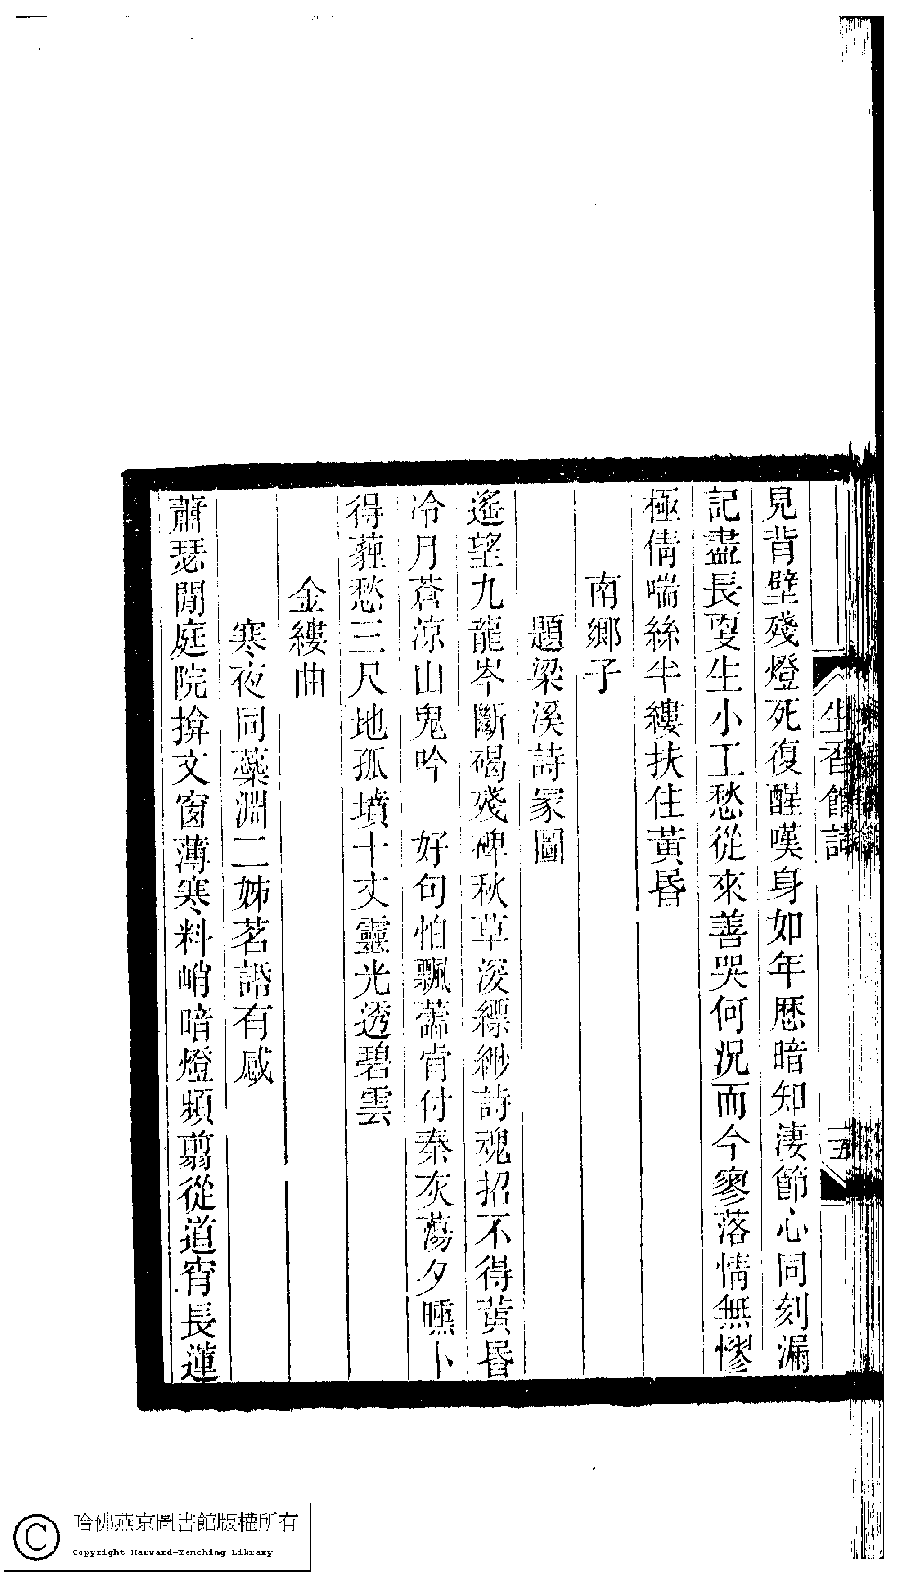 生香館詞
五
見背壁殘燈死復醒嘆身如年歷暗知淒節心同刻漏
記盡長更生小工愁從來善哭何況而今寥落情無憀
極倩喘絲半縷扶住黃昏
南鄉子
題梁溪詩冢圖
遙望九龍岑斷碣殘碑秋草深縹緲詩魂招不得黃昏
冷月蒼涼山鬼吟　好句怕飄蕭肯付秦灰蕩夕曛卜
得薶愁三尺地孤墳十丈靈光透碧雲
金縷曲
寒夜同藥淵二姊茗話有感
蕭瑟閒庭院揜文窗薄寒料峭暗燈頻翦從道宵長蓮
哈佛燕京圖書館版權所有
Copyright Harvard-Yenching Library